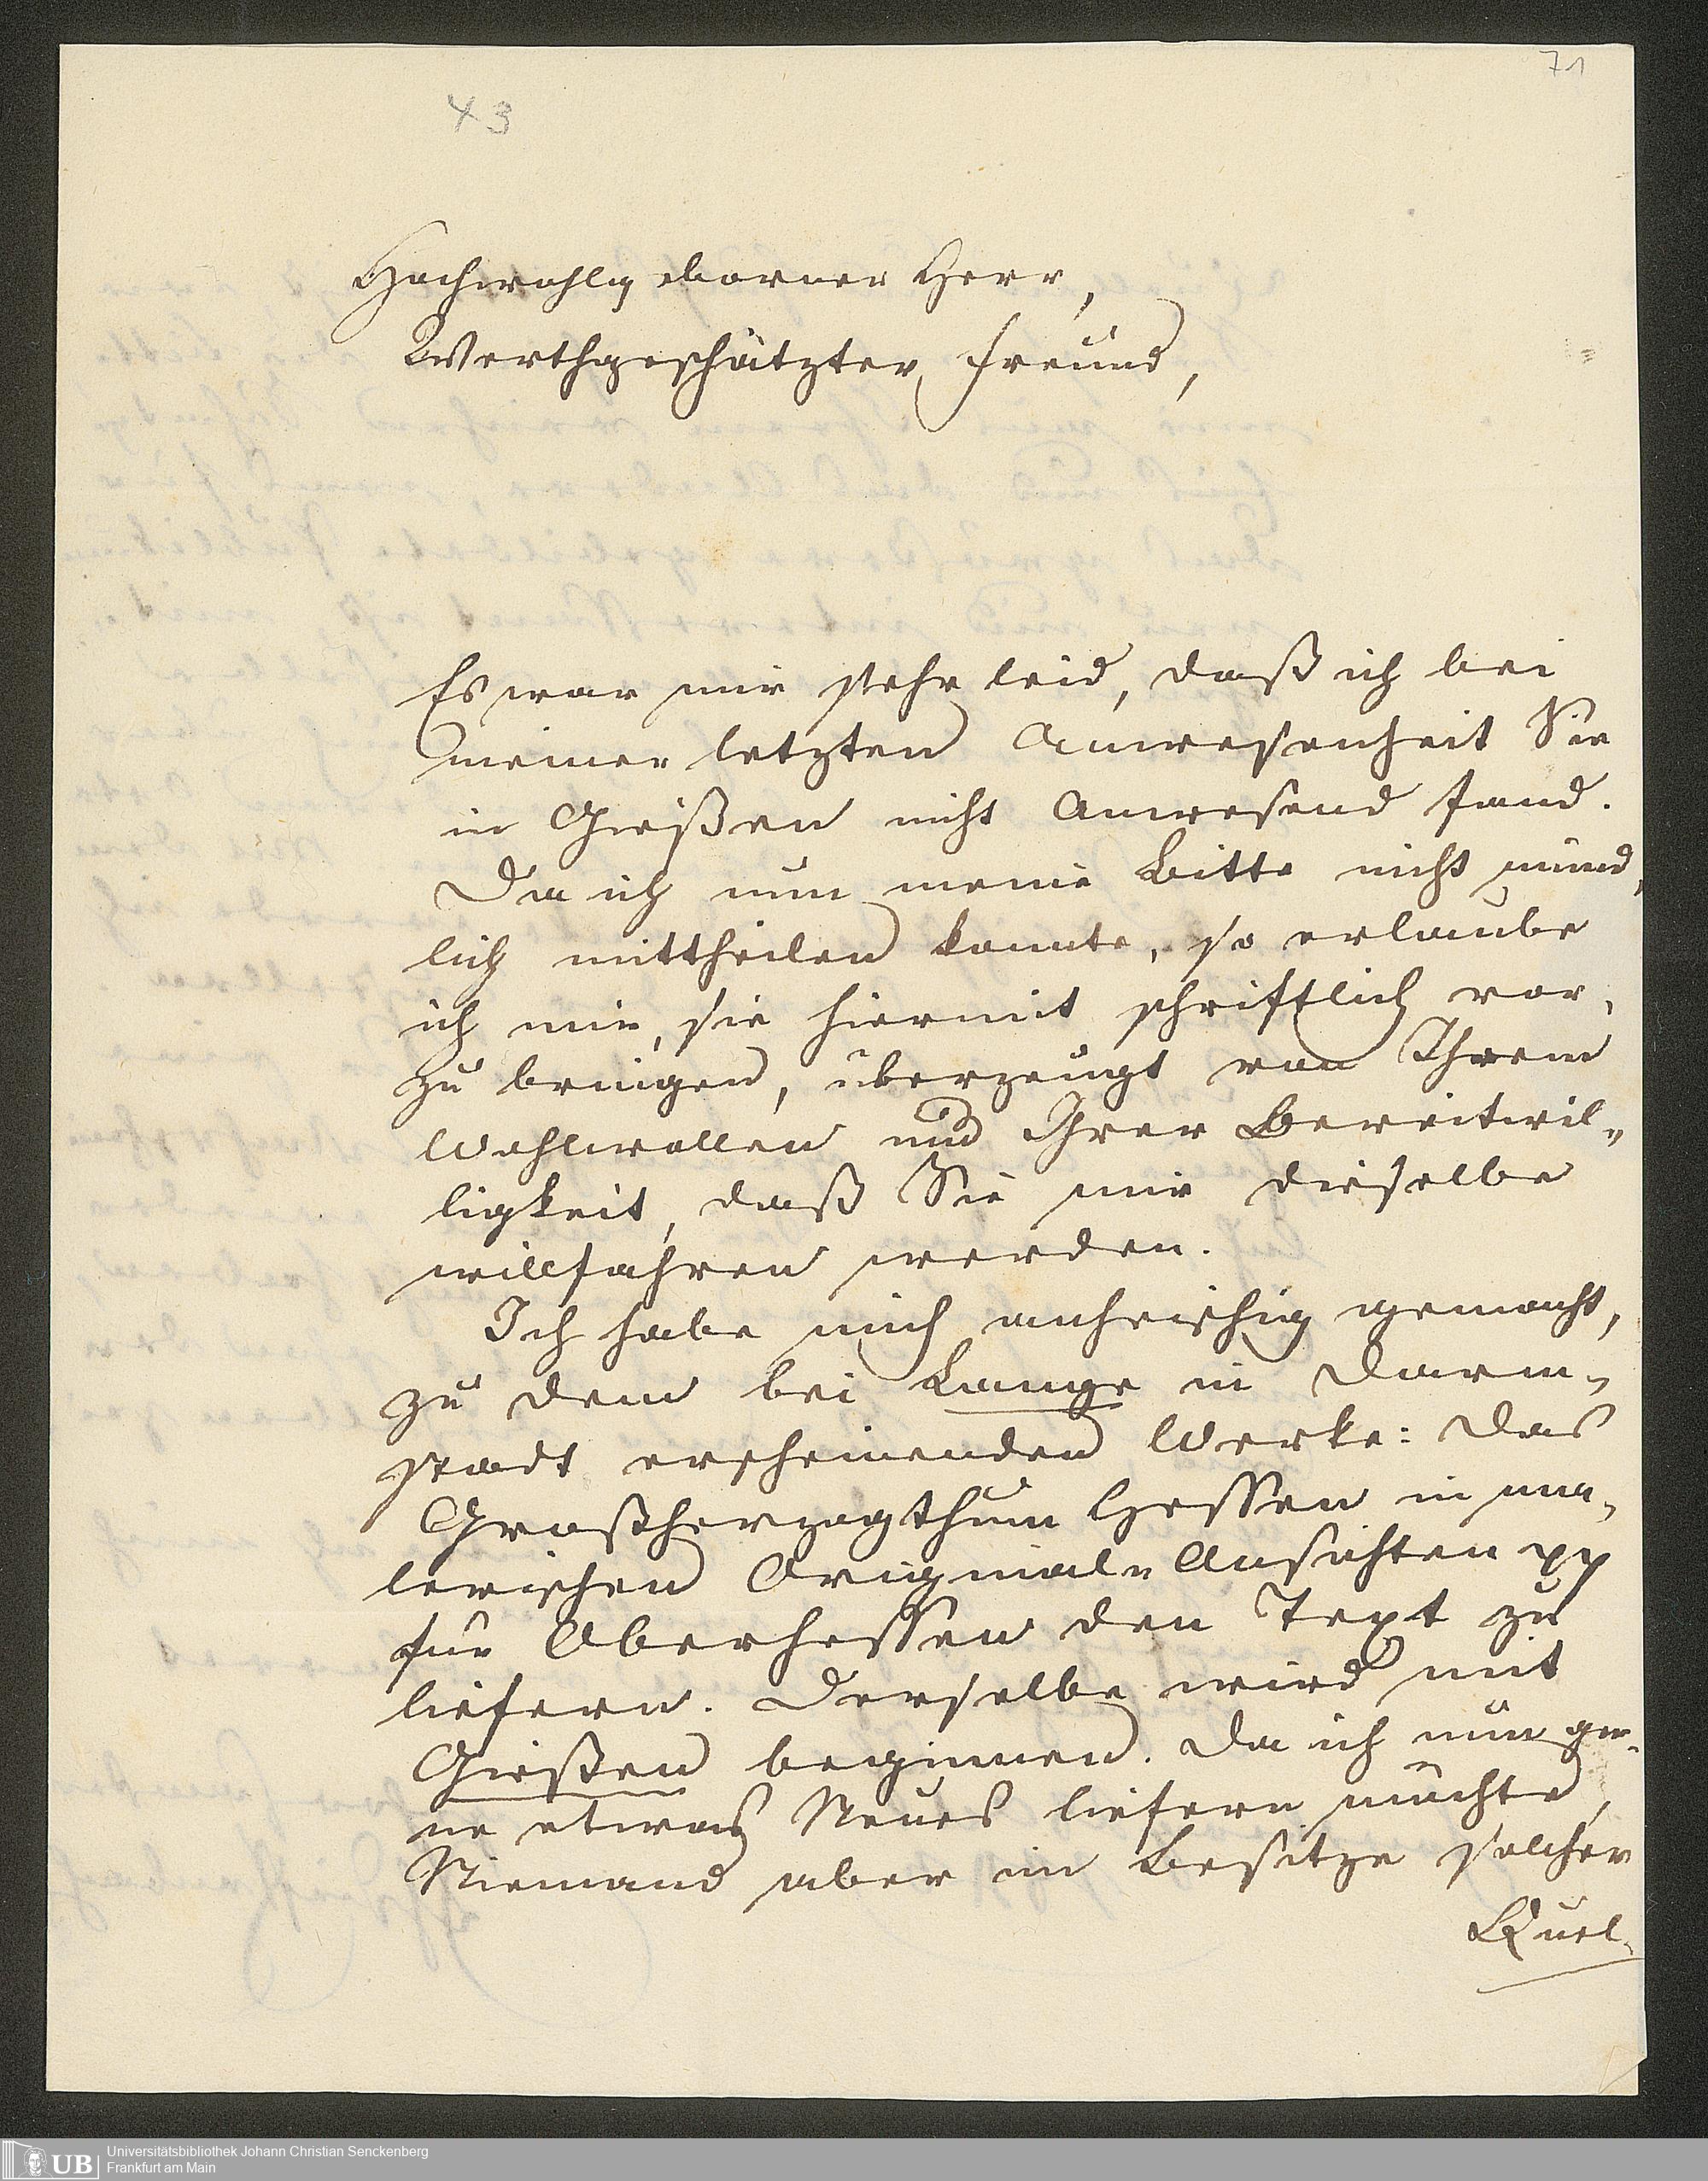 71
43
Hochwohlgeborner Herr,
Werthgeschätzter Freund,
Es war mir sehr leid, daß ich bei
meiner letzten Anwesenheit Sie
in Gießen nicht Anwesend fand.
Da ich nun meine Bitte nicht münd,
lich mittheilen konnte, so erlaube
ich mir, sie hiermit schriftlich vor,
zu bringen, überzeugt von Ihrem
Wohlwollen und Ihrer Bereitwil„
ligkeit, daß Sie mir dieselbe
willfahren werden.
Ich habe mich anheischig gemacht,
zu dem bei Lange in Darm„
stadt erscheinenden Werke: Das
Großherzogthum Hessen in ma,
lerischen Original„Ansichten pp
für Oberhessen den Text zu
liefern. Derselbe wird mit
Gießen beginnen. Da ich nun ger„
ne etwas Neues liefern möchte,
Niemand aber im Besitze solcher
Quel„
Universitätsbibliothek Johann Christian Senckenberg
Frankfurt am Main
UB